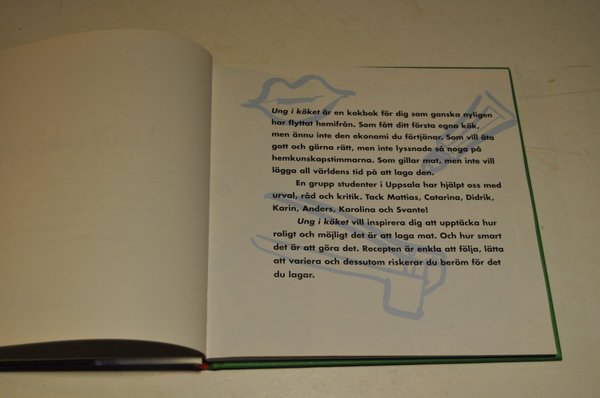 Ung i köket är en kokbok för dig som ganska nyligen
har flyttat hemifrån. Som fått ditt första egna kök,
men ännu inte den ekonomi du förtjänar. Som vill äta
gott och gärna rätt, men inte lyssnade så noga på
hemkunskapstimmarna. Som gillar mat, men inte vill
lägga all världens tid på att laga den.
En grupp studenter i Uppsala har hjälpt oss med
urval, råd och kritik. Tack Mattias, Catarina, Didrik,
Karin, Anders, Karolina och Svante!
Ung i köket vill inspirera dig att upptäcka hur
roligt och möjligt det är att laga mat. Och hur smart
det är att göra det. Recepten är enkla att följa, lätta
att variera och dessutom riskerar du beröm för det
du lagar.